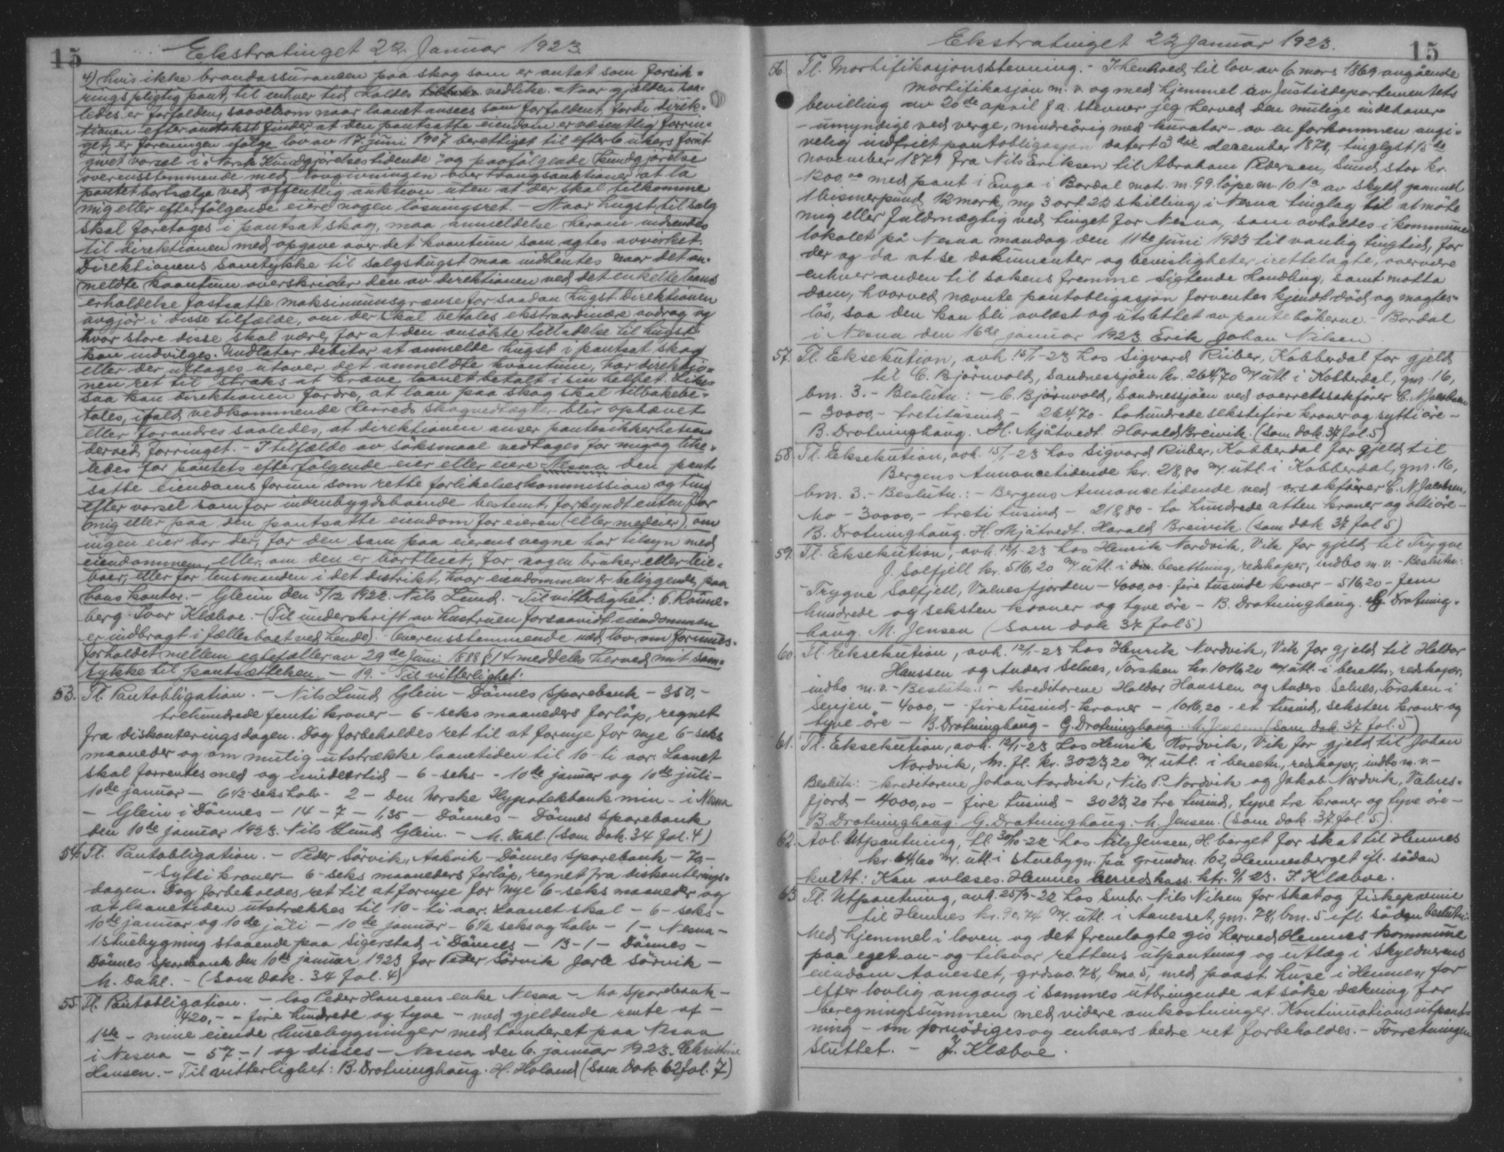 15
Ekstratinget 22 Januar 1923
4) hvis ikke brandassurancen paa skog som er antat som forsik-
ringspligtig pant, til enhver tid holdes vedlike. Naar gjælden saa-
ledes er forfalden, saavelsom naar laanet ansees som forfaldent, fordi direk-
tionen efter avtakst finder at den pantsatte eiendom er væsentlig forrin-
get, er foreningen ifølge lov av 17 juni 1907 berettiget til efter 6 ukers forut
givet varsel i "Norsk Kundgjørelsestidende" og paafølgende kundgjørelse
overensstemmende med lovgivningen over tvangsauktioner at la
pantet bortsælge ved offentlig auktion uten at der skal tilkomme
mig eller efterfølgende eiere nogen løsningsret. - Naar hugst til salg
skal foretages i pantsat skog, maa anmeldelse herom indsendes
til direktionen med opgave over det kvantum som agtes avvirket.
Direktionens samtykke til salgshugst maa indhentes naar det an-
meldte kvantum overskrider den av direktionen ved det enkelte laans
erholdelse fastsatte maksimumsgrænse for saadan hugst. Direktionen
avgjør i disse tilfælde, om der skal betales ekstraordinære avdrag og
hvor store disse skal være, for at den ansøkte tilladelse til hugst
kan indvilges. Undlater debitor at anmelde hugst i pantsat skog
eller der uttages utover det anmeldte kvantum, har direktio-
nen ret til straks at kræve laanet betalt i sin helhet. Like-
saa kan direktionen fordre, at laan paa skog skal tilbakebe-
tales, ifald vedkommende herreds skogvedtægter blir ophævet
eller forandres saaledes, at direktionen anser pantesikkerheten
derved forringet. - I tilfælde av søksmaal vedtages for mig og like-
ledes for pantets efterfølgende eier eller eiere Nesna den pant-
satte eiendoms forum som rette forlikelseskommission og ting
efter varsel som for indenbygdsboende bestemt, forkyndt enten for
mig eller paa den pantsatte eiendom for eieren (eller medeier), om
ingen eier bor der, for den som paa eierens vegne har tilsyn med
eiendommen, eller, om den er bortleiet, for nogen bruker eller leie-
boer, eller for lensmanden i det distrikt, hvor eiendommen er beliggende, paa
hans kontor. - Glein den 5/12 1922. Nils Lund. - Til vitterlighet: O. Rønne-
berg. Ivar Klæboe. - (Til underskrift av hustruen forsaavidt eiendommen
er indbragt i fællesboet ved hende). - Overensstemmende med lov om formues-
forholdet mellem egtefæller av 29de juni 1888 § 14 meddeles herved mit sam-
tykke til pantsættelsen. - 19. - Til vitterlighet:
53. Tl. Pantobligation. - Nils Lund Glein - Dønnes Sparebank - 350,-
trehundrede femti kroner - 6-seks maaneders forløp, regnet
fra diskonteringsdagen. Dog forbeholdes ret til at fornye for nye 6-seks
maaneder og om mulig utstrække laanetiden til 10-ti aar. Laanet
skal forrentes med og imidlertid - 6-seks - 10de januar og 10de juli -
10de januar - 6½ seks halv - 2 - Den Norske Hypotekbank min - i Nesna
- Glein i Dønnes - 14 - 7 - 1,35 - Dønnes - Dønnes Sparebank
den 10de januar 1923. Nils Lund Glein. - M. Dahl. (Som dok. 34 fol. 4)
54. Tl. Pantobligation. - Peder Sørvik, Askvik - Dønnes Sparebank - 70-
- Sytti kroner - 6-seks maaneders forløp, regnet fra diskonterings-
dagen. Dog forbeholdes ret til at fornye for nye 6-seks maaneder og
at laanetiden utstrækkes til 10-ti aar. Laanet skal - 6-seks -
10de januar og 10de juli - 10de januar - 6½ seks og halv - 1 - Nesna -
1 stuebygning staaende paa Sigerstad i Dønnes - 13 - 1 - Dønnes -
Dønnes Sparebank den 10de januar 1923 for Peder Sørvik Jarle Sørvik -
M. Dahl. - (Som dok. 34 fol. 4)
55. Tl. Pantobligation. - Las Peder Hansens enke Nesna - Mo Sparebank -
420,- - fire hundrede og tyve - med gjeldende rente af -
1ste - mine eiende husebygninger med tomteret paa Nesna
i Nesna - 57 - 1 og disses - Nesna den 6. januar 1923. Christine
Hansen. - Til vitterlighet: B. Drotninghaug. H. Holand (Som dok. 62 fol. 7)
Ekstratinget 22 Januar 1923.
15
56. Tl. Mortifikasjonsstevning. - I henhold til lov av 6 mars 1869 angående
mortifikasjon m. v. og med hjemmel av Justisdepartementets
bevilling av 20de april f.a. stevner jeg herved den mulige indehaver
- umyndige ved verge, mindreårig med kurator - av en forkommen angi-
velig indfriet pantobligasjon datert 3 desember 1878, tinglyst 15de
november 1879 fra Nils Eriksen til Abraham Pedersen, Sund, stor kr
1200.00 med pant i Enga i Bardal mat. nr. 99 løpenr. 101a av skyld gammel
1 bismerpund 12 mark, ny 3 ort 22 skilling i Nesna tinglag til at møte
mig eller fuldmægtig ved tinget for Nesna, som avholdes i kommune
lokalet på Nesna mandag den 11te juni 1923 til vanlig tingtid, for
der og da at se dokumenter og bevisligheter irettelagte, overvære
enhver anden til sakens fremme sigtende handling, samt motta
dom, hvorved nævnte pantobligasjon forventes kjendt død og magtes-
løs, saa den kan bli avlæst og utslettet av pantebøkerne. - Bardal
i Nesna den 16de januar 1923. Erik Johan Nilsen.
57. Tl. Eksekution, avh. 15/1-23 hos Sigvard Riiber, Kobberdal for gjeld
til C. Bjørnvold, Sandnessjøen kr. 264,70 m/utl i Kobberdal, gnr 16,
bnr. 3. - Beslutn: - C. Bjørnvold, Sandnessjøen ved overretssakfører C. N. Jacobsen
- 30000,- tretitusind - 264,70 - tohundrede sekstifire kroner og sytti øre -
B. Drotninghaug. H. Mjåtvedt. Harald Breivik. (Som dok. 37 fol. 5)
58. Tl. Eksekution, avh. 15/1-23 hos Sigvard Riiber, Kobberdal for gjeld til
Bergens Annoncetidende kr. 218,80 m/utl i Kobberdal, gnr. 16,
bnr. 3. - Beslutn.: - Bergens Annoncetidende ved o.r.sakfører C. N. Jacobsen,
Mo - 30000,- tretti tusind - 218,80 - to hundrede atten kroner og åtti øre -
B. Drotninghaug. H. Mjåtvedt. Harald Breivik (Som dok 37 fol 5)
59. Tl. Eksekution, avh. 12/1-23 hos Henrik Nordvik, Vik for gjeld til Trygve
J. Solfjell kr. 516,20 m/utl. i besetning, redskaper, indbo m. v. - Beslutn:
- Trygve Solfjell, Valnesfjorden - 4000,00 - fire tusinde kroner - 516,20 - fem
hundrede og seksten kroner og tyve øre - B. Drotninghaug. G. Drotning-
haug. M. Jensen (Som dok 37 fol 5)
60. Tl. Eksekution, avh. 12/1-23 hos Henrik Nordvik, Vik for gjeld til Haldor
Hanssen og Anders Selnes, Torsken kr. 1016,20 m/utl. i besetn., redskaper,
indbo m. v. - Beslutn.: - kreditorene Haldor Hanssen og Anders Selnes, Torsken i
Senjen - 4000,- - firetusind kroner - 1016,20 - et tusind, seksten kroner og
tyve øre - B. Drotninghaug - G. Drotninghaug. M. Jensen (Som dok. 37 fol. 5)
61. Tl. Eksekution, avh. 12/1-23 hos Henrik Nordvik, Vik for gjeld til Johan
Nordvik, m. fl. kr. 3023,20 m/utl. i besetn., redskaper, indbo m. v. -
Beslutn: - kreditorene Johan Nordvik, Nils P. Nordvik og Jakob Nordvik, Valnes-
fjord - 4000,00 - fire tusind - 3023,20 tre tusind, tyve tre kroner og tyve øre -
B. Drotninghaug. G. Drotninghaug. M. Jensen. (Som dok. 37 fol. 5)
62. Avl. Utpantning, tl. 30/10-22 hos Nils Jensen, H.berget for skat til Hemnes
kr. 64,60 m. utl. i stuebygn. på grundnr. 162, Hemnesberget ifl. sådan
kvittering: Kan avlæses. Hemnes herredskass. ktr. 9/1 23. J. Klæboe.
63. Tl. Utpantning, avh. 25/9-22 hos Smbr. Nils Nilsen for skat og fiskepremie
til Hemnes kr. 90,74 m/utl. i Aanesset, gnr. 78, bnr. 5 ifl. sådan beslutn:
Med hjemmel i loven og det fremlagte gis herved Hemnes kommune
paa eget an- og tilsvar rettens utpantning og utlæg i skyldnerens
eiendom Aanesset, grdno. 78, bno 5, med paast. huse i Hemnes, for
efter lovlig omgang i sammes utbringende at søke dækning for
beregningssummen med videre omkostninger. Kontinuationsutpant-
ning - om fornødiges og enhvers bedre ret forbeholdes. - Forretningen
sluttet. - J. Klæboe.